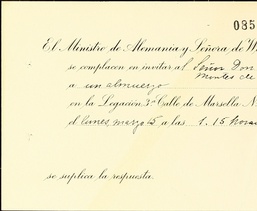 085
El Ministro de Alemania y Señora de W
se complacen en invitar al Señor Don
Montes de
a un almuerzo
en la Legación 3ª Calle de Marsella N
el lunes, marzo 5 a las 1.15 horas
se suplica la respuesta.